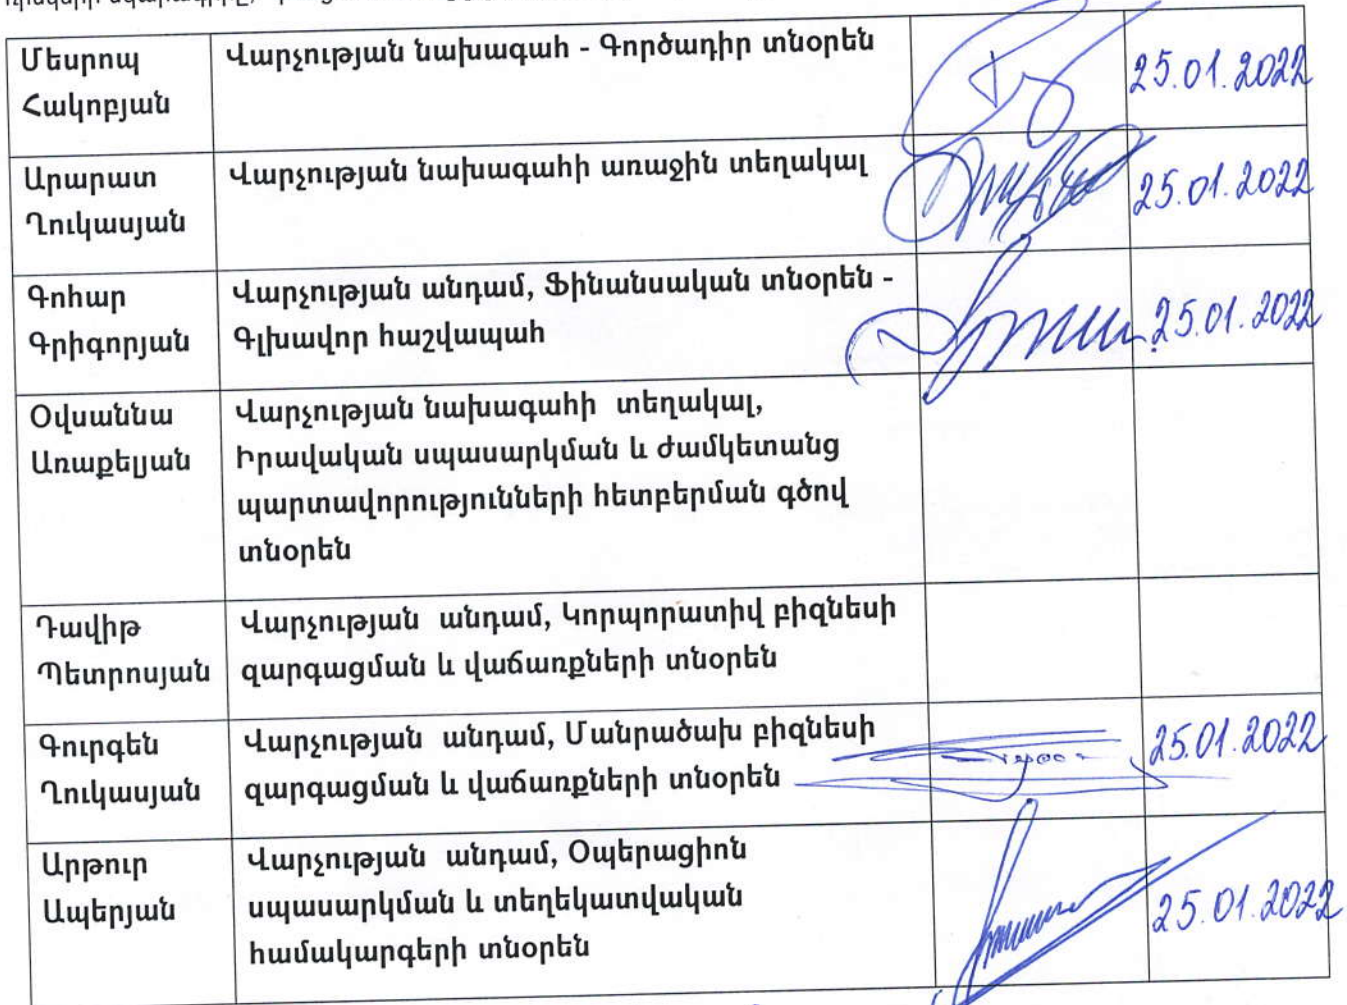 Մեսրոպ
Հակոբյան
Վարչության նախագահ - Գործադիր տնօրեն
25.01.2022
Արարատ
Ղուկասյան
Վարչության նախագահի առաջին տեղակալ
25.01.2022
Գոհար
Գրիգորյան
Վարչության անդամ, Ֆինանսական տնօրեն -
Գլխավոր հաշվապահ
25.01.2022
Օվսաննա
Առաքելյան
Վարչության նախագահի տեղակալ,
Իրավական սպասարկման և ժամկետանց
պարտավորությունների հետբերման գծով
տնօրեն
Դավիթ
Պետրոսյան
Վարչության անդամ, Կորպորատիվ բիզնեսի
զարգացման և վաճառքների տնօրեն
Գուրգեն
Ղուկասյան
Վարչության անդամ, Մանրածախ բիզնեսի
զարգացման և վաճառքների տնօրեն
25.01.2022
Արթուր
Ապերյան
Վարչության անդամ, Օպերացիոն
սպասարկման և տեղեկատվական
համակարգերի տնօրեն
25.01.2022